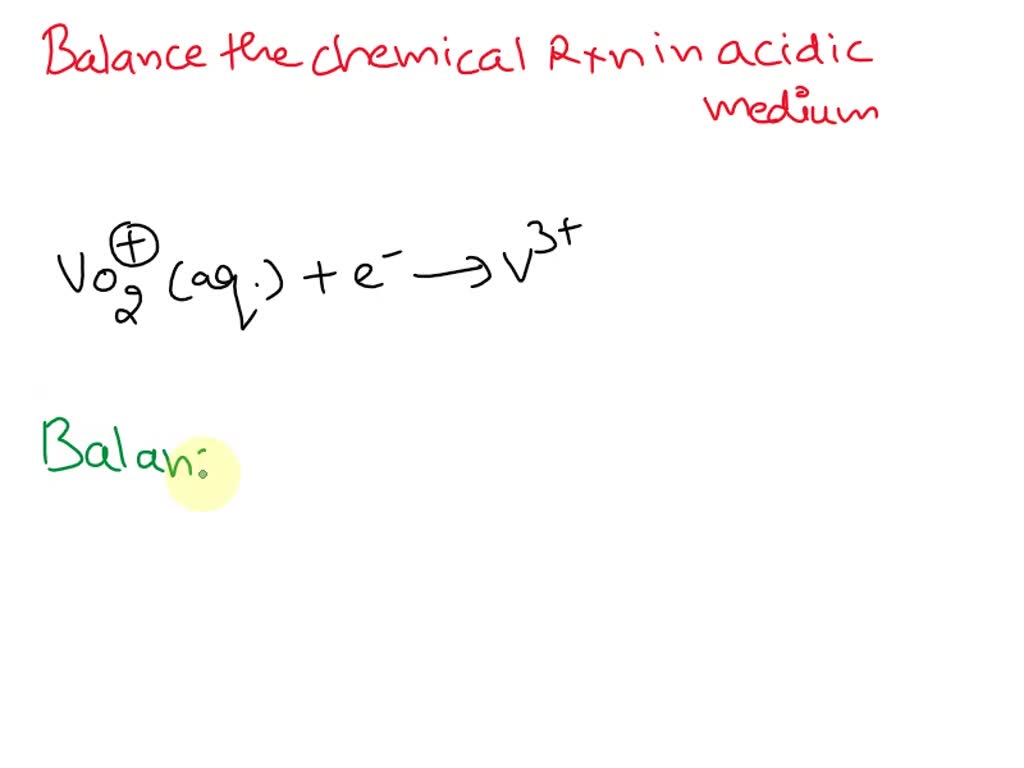 Balance the chemical Rxn in acidic
medium
VO₂⁺ (aq.) + e⁻ → V³⁺
Balan: